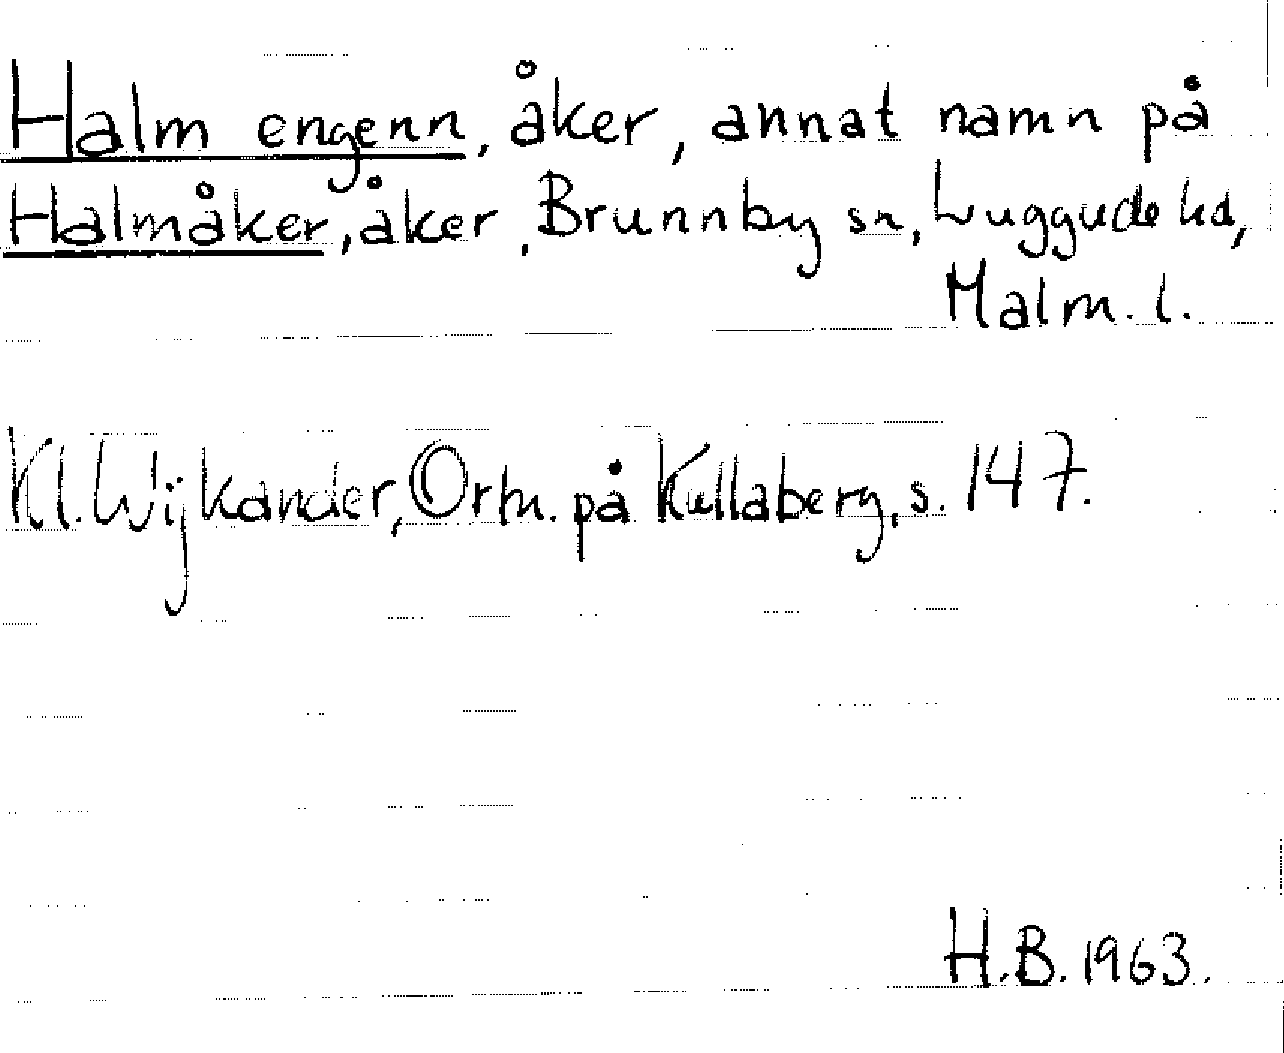 Halm engenn, åker, annat namn på
Halmåker, åker, Brunnby sn, Luggude hd,
Malm. l.
Kl. Wijkander, Ortn. på Kullaberg, s. 147.
H.B. 1963.